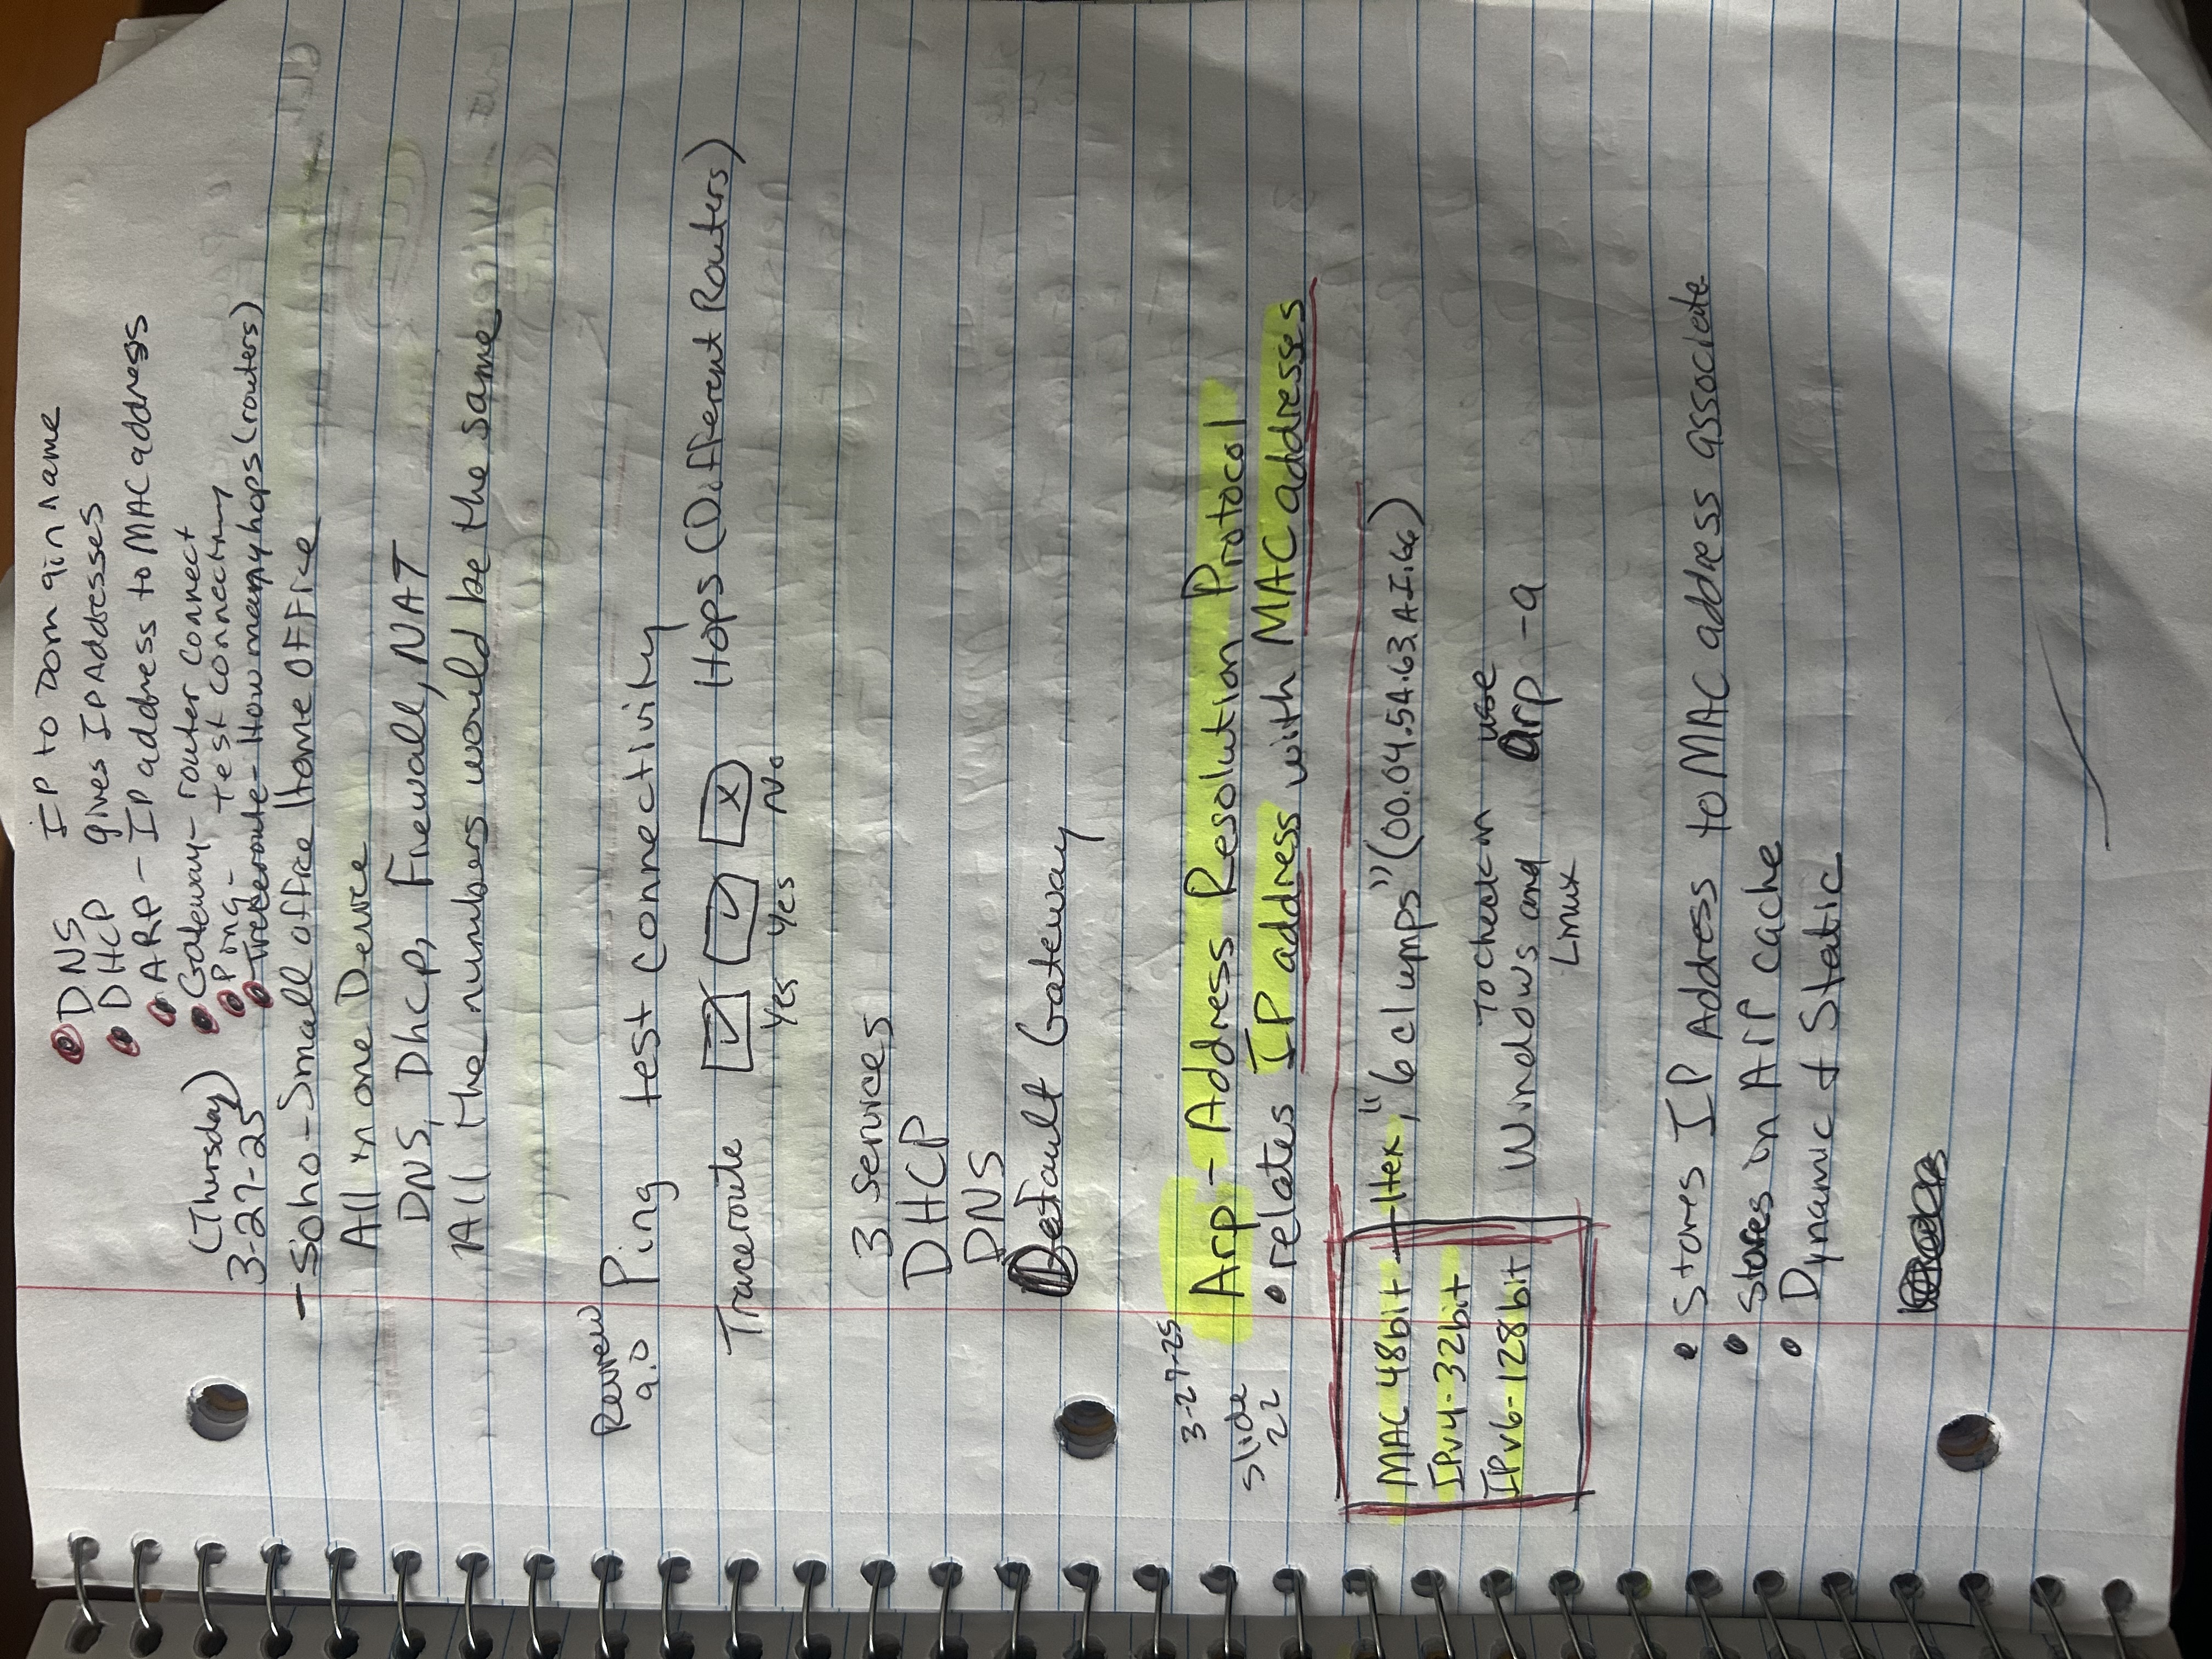 DNS IP to Domain name
DHCP gives IP Addresses
ARP - IP address to MAC address
Gateway - router connect
(Thursday)
Ping - test connectivity
3-27-25
Traceroute - How many hops (routers)
- Soho - Small office Home OFFice
All in one Device
DNS, Dhcp, Firewall, NAT
All the numbers would be the same
Review
9.0
Ping test connectivity
Traceroute Hops (Different Routers)
Yes Yes No
3 Services
DHCP
DNS
Default Gateway
3-27-25
slide
22
Arp - Address Resolution Protocol
• relates IP address with MAC addresses
MAC 48bit - Hex, "6 clumps" (00.04.5A.63.A1.66)
IPv4 - 32bit
IPv6 - 128bit
To check in use
Windows and arp -a
Linux
• Stores IP Address to MAC address associate
• stores in Arp cache
• Dynamic + Static